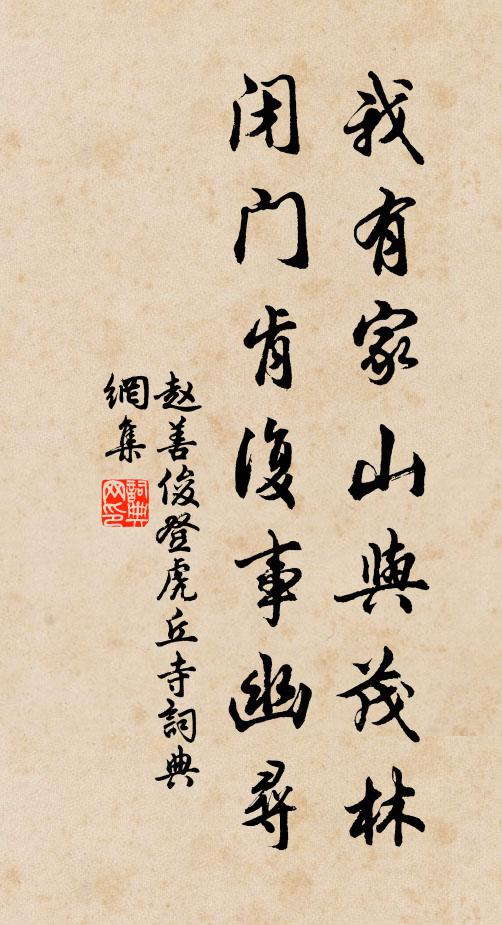 我有家山與茂林
闭门肯復事幽尋
赵善俊登虎丘寺詞典
網集
詞典
网印